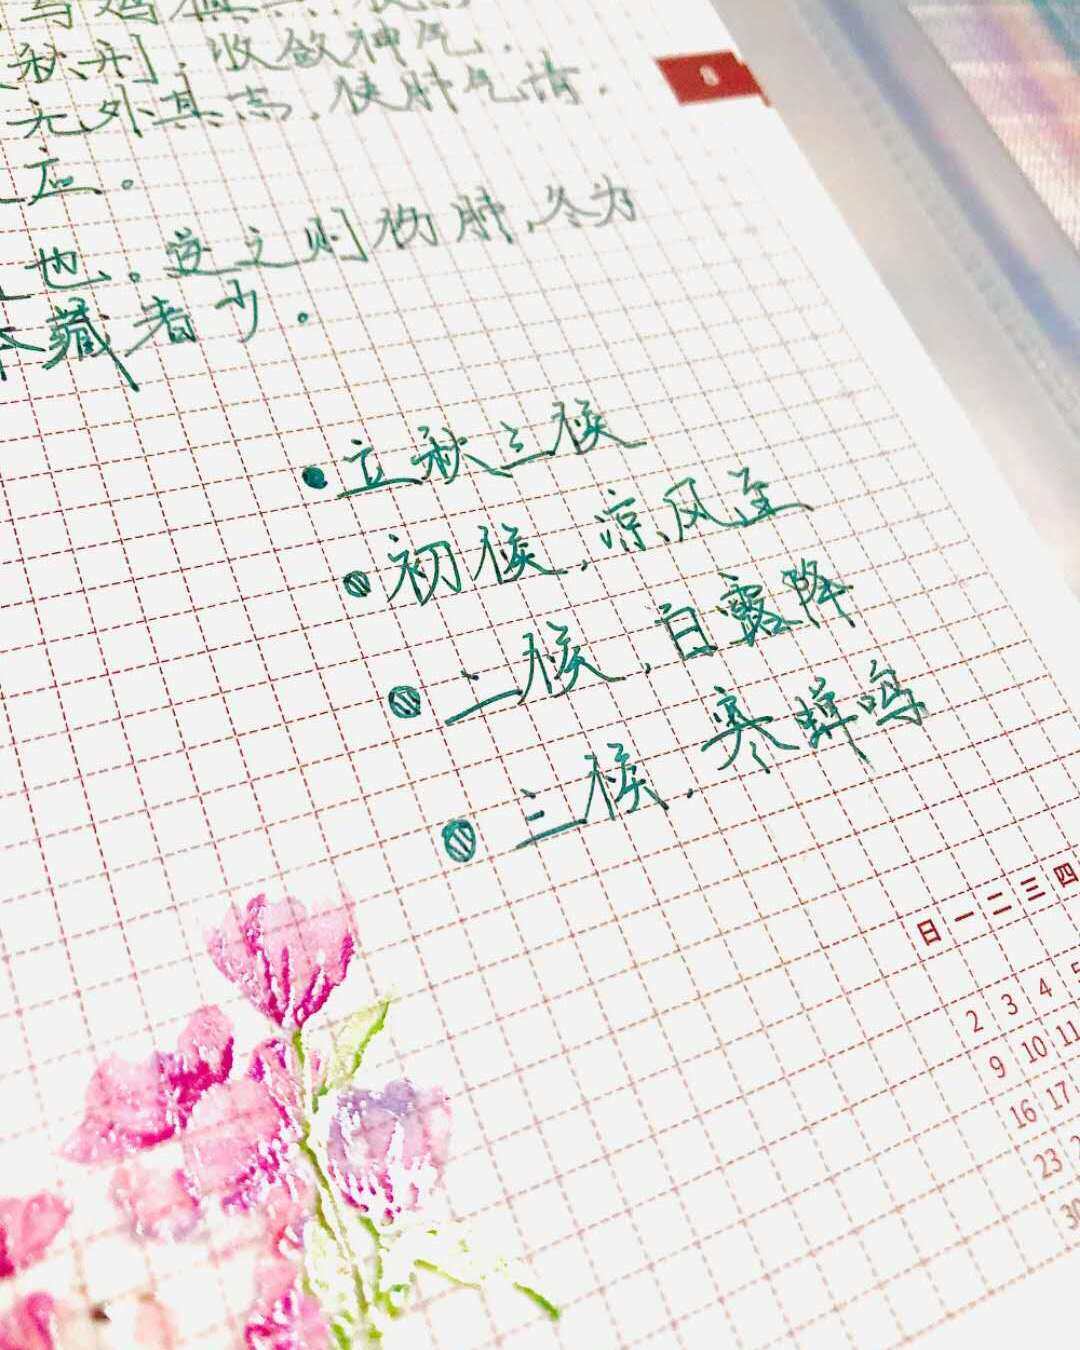 与鸡俱
秋刑，收敛神气，
无外其志，使肺气清，
应。
也。逆之则伤肺，冬为
藏者少。
8
立秋三候
初候，凉风至
二候，白露降
三候，寒蝉鸣
日 一 二 三 四
2 3 4 5
9 10 11
16 17
23
30